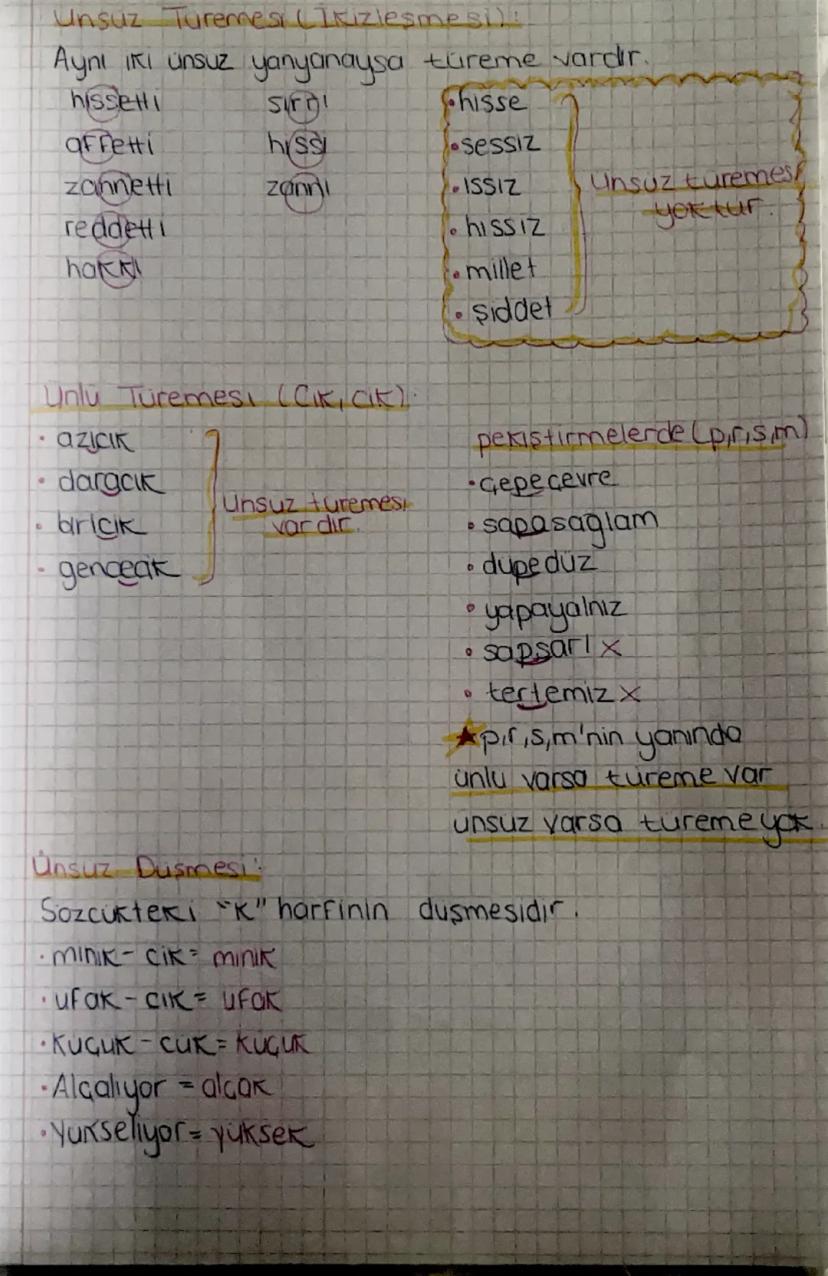 Ünsüz Türemesi (İkizleşmesi):
Aynı iki ünsüz yanyanaysa türeme vardır.
hissetti
affetti
zannetti
reddetti
hakkı
sırrı
hissi
zannı
• hisse
• sessiz
• ıssız
• hissiz
• millet
• şiddet
Ünsüz türemesi
yoktur.
Ünlü Türemesi (Cık, cik):
• azıcık
• daracık
• biricik
• gencecik
Ünsüz türemesi
vardır.
pekiştirmelerde (p,r,s,m)
• çepeçevre
• sapasağlam
• düpedüz
• yapayalnız
• sapsarı x
• tertemiz x
★ p,r,s,m'nin yanında
ünlü varsa türeme var
ünsüz varsa türeme yok.
Ünsüz Düşmesi:
Sözcükteki "K" harfinin düşmesidir.
• minik - cik = minik
• ufak - cık = ufak
• küçük - cük = küçük
• Alçalıyor = alçak
• Yükseliyor = yüksek